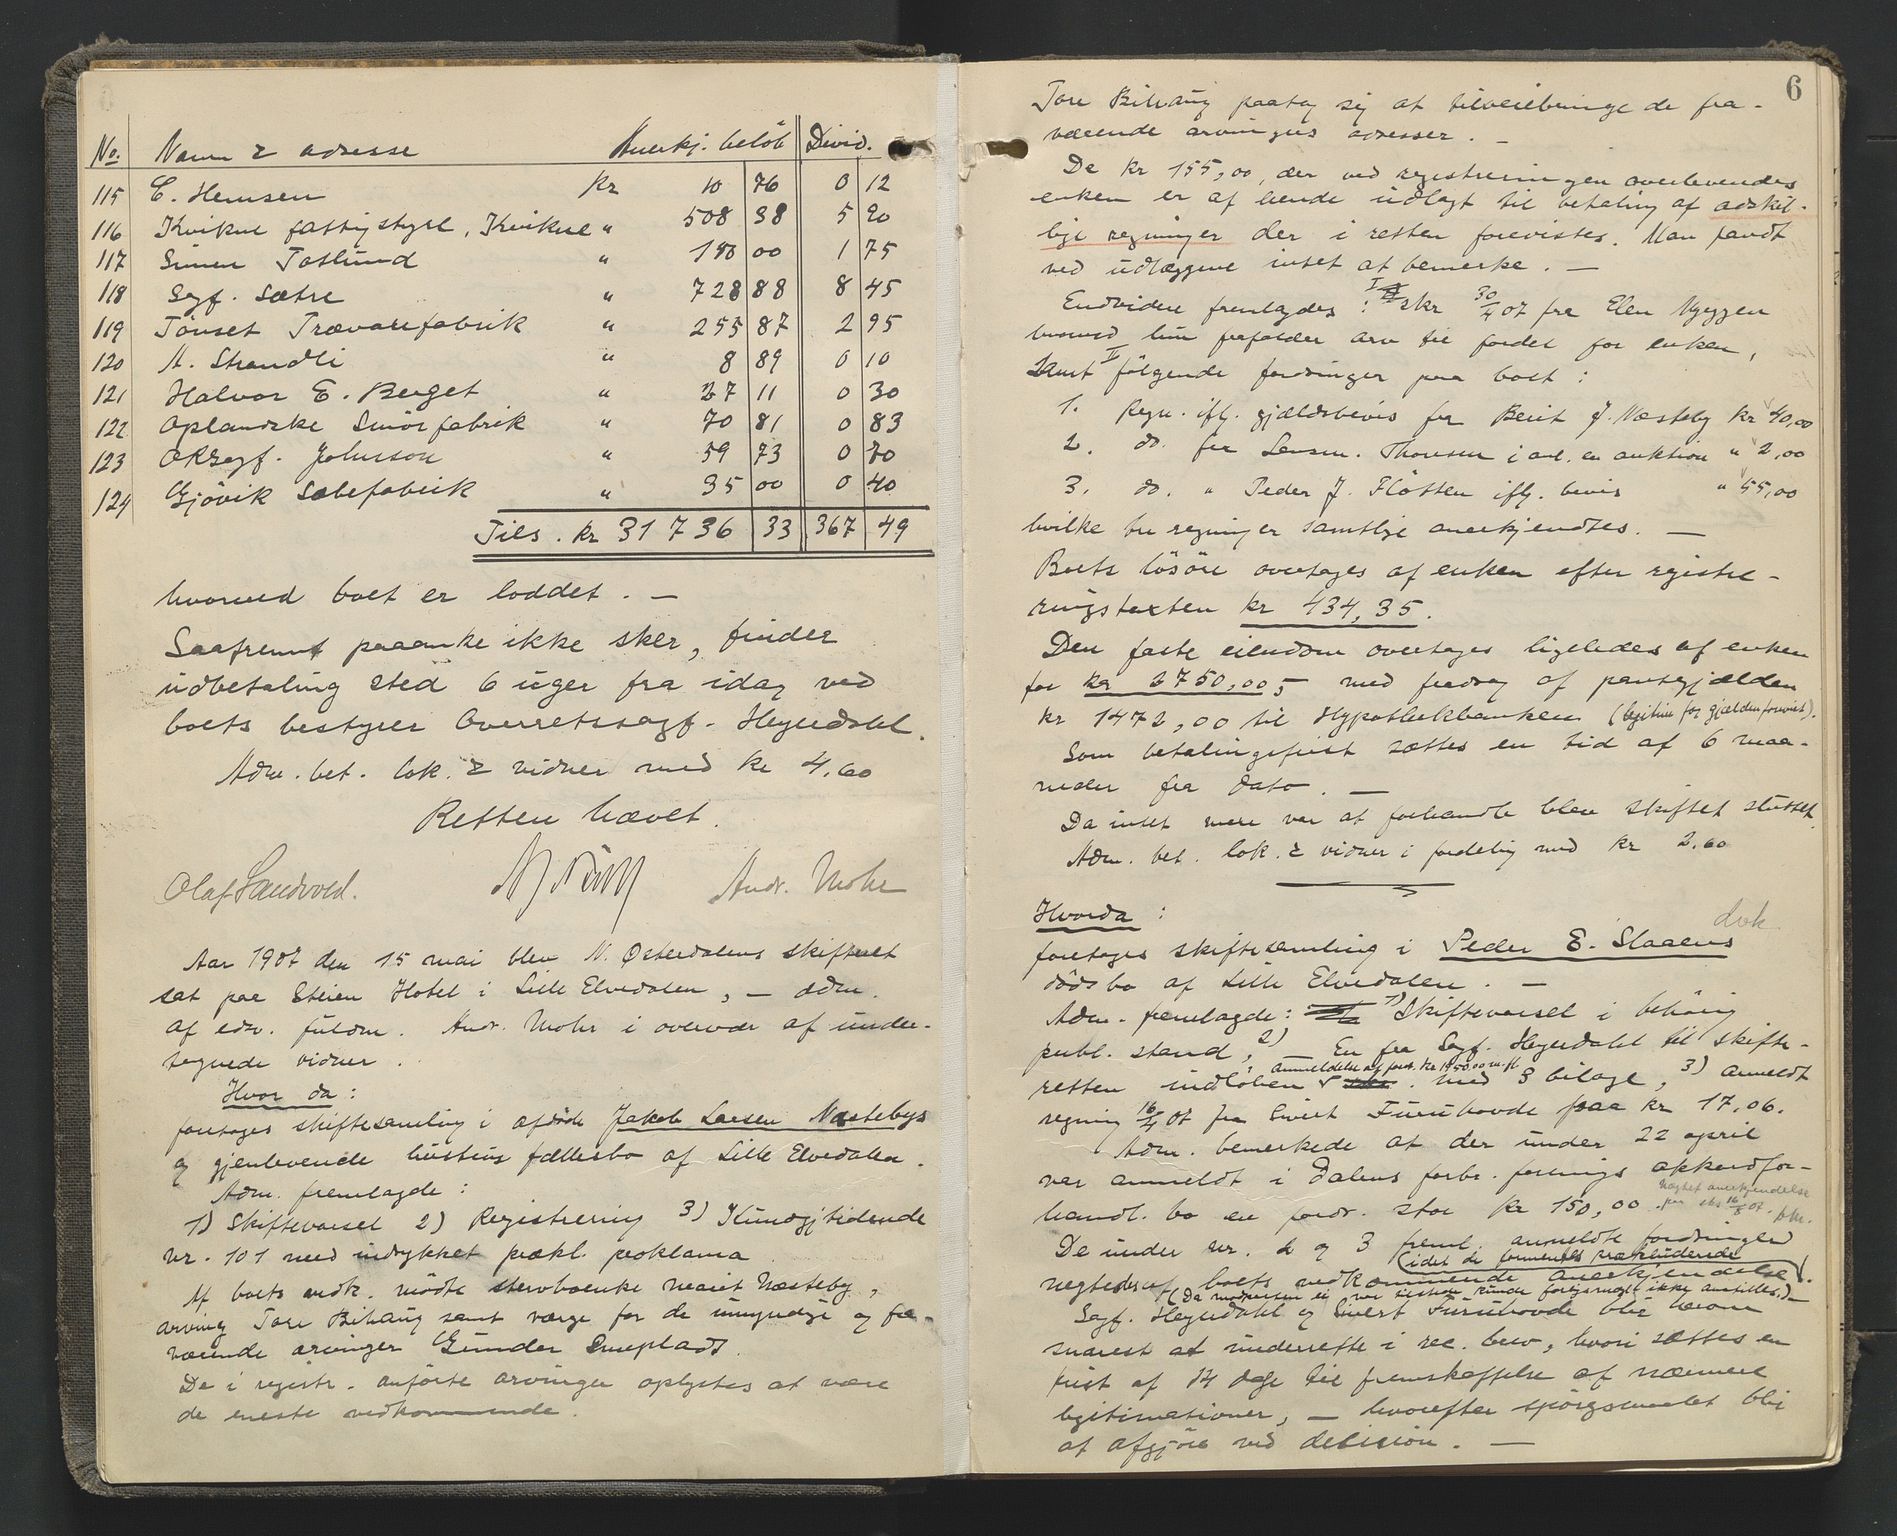 No. Navn & adresse Anerkj. beløb Divid.
115 C. Hemsen kr 10 76 0 12
116 Kvikne fattigstyre, Kvikne " 508 38 5 90
117 Simen Taslund " 150 00 1 75
118 Sagf. Sætre " 728 88 8 45
119 Tönset Trævarefabrik " 255 87 2 95
120 A. Strandli " 8 89 0 10
121 Halvor E. Berget " 27 11 0 30
122 Oplandske Smörfabrik " 70 81 0 83
123 ORsagf. Johnson " 59 73 0 70
124 Gjövik Sæbefabrik " 35 00 0 40
Tils. kr 31 736 33 367 49
hvorved boet er loddet. —
Saafremt paaanke ikke sker, finder
udbetaling sted 6 uger fra idag ved
boets bestyrer Overretssagf. Heyerdahl.
Adm. bet. lok. & vidner med kr 4.60
Retten hævet.
Olaf Sandvold. Andr. Mohr
Aar 1907 den 15 mai blev N. Østerdalens skifteret
sat paa Steien Hotel i Lille Elvedalen, — adm.
af edsv. fuldm. Andr. Mohr i overvær af under-
tegnede vidner.
Hvor da:
foretoges skiftesamling i afdöde Jakob Larsen Næstebys
og gjenlevende hustrus fællesbo af Lille Elvedalen.
Adm. fremlagde:
1) Skiftevarsel 2) Registrering 3) Kundgjtidende
nr. 101 med indrykket prækl. proklama
Af boets vedk. mödte stervboenke Marit Næsteby,
arving Tore Bihaug samt værge for de umyndige og fra-
værende arvinger Gunder Eneplads.
De i registr. anförte arvinger oplystes at være
de eneste vedkommende.
6
Tore Bihaug paatog sig at tilveiebringe de fra-
værende arvingers adresser. —
De kr 155,00, der ved registreringen overlevendes
enken er af hende udlagt til betaling af adskil-
lige regninger der i retten forevistes. Man fandt
ved udlæggene intet at bemerke. —
Endvidere fremlagdes: I skr 30/4 07 fra Elen Nyeggen
hvorved hun frafalder arv til fordel for enken,
samt II følgende fordringer paa boet:
1. Regn. iflg. gjældsbevis fra Berit J. Næsteby kr 40,00
2. do. fra Lensm. Thoresen i anl. en auktion " 2,00
3. do. " Peder J. Flötten iflg. bevis " 55,00
hvilke tre regninger samtlige anerkjendtes. —
Boets lösöre overtages af enken efter registre-
ringstaxten kr 434,35.
Den faste eiendom overtages ligeledes af enken
for kr 2750,00, med fradrag af pantegjælden
kr 1472,00 til Hypothekbanken (legitim. for gjælden forevist).
Som betalingsfrist sættes en tid af 6 maa-
neder fra dato. —
Da intet mere var at forhandle blev skiftet sluttet.
Adm. bet. lok. & vidner i fordeling med kr 2.60
Hvorda:
dok
foretoges skiftesamling i Peder E. Slaaens
dödsbo af Lille Elvedalen. —
Adm. fremlagde: 1) Skiftevarsel i behörig
publ. stand, 2) En fra Sagf. Heyerdahl til skifte-
retten indløben anmeldelse af ford. kr 1950.00 m. fl. med 3 bilage, 3) anmeldt
regning 16/4 07 fra Sivert Furuhovde paa kr 17,06.
Adm. bemerkede at der under 22 april
var anmeldt i Dalens forbr. forenings akkordfor-
handl. bo en fordr. stor kr 150,00. Nægtet anerkjendelse
De under nr. 2 og 3 freml. anmeldte fordringer
negtedes af boets vedkommende anerkjendelse
Sagf. Heyerdahl og Sivert Furuhovde blir herom
snarest at underrette i rec. brev, hvori sættes en
frist af 14 dage til fremskaffelse af nærmere
legitimationer, — hvorefter spörgsmaalet blir
at afgjöre ved decision. —